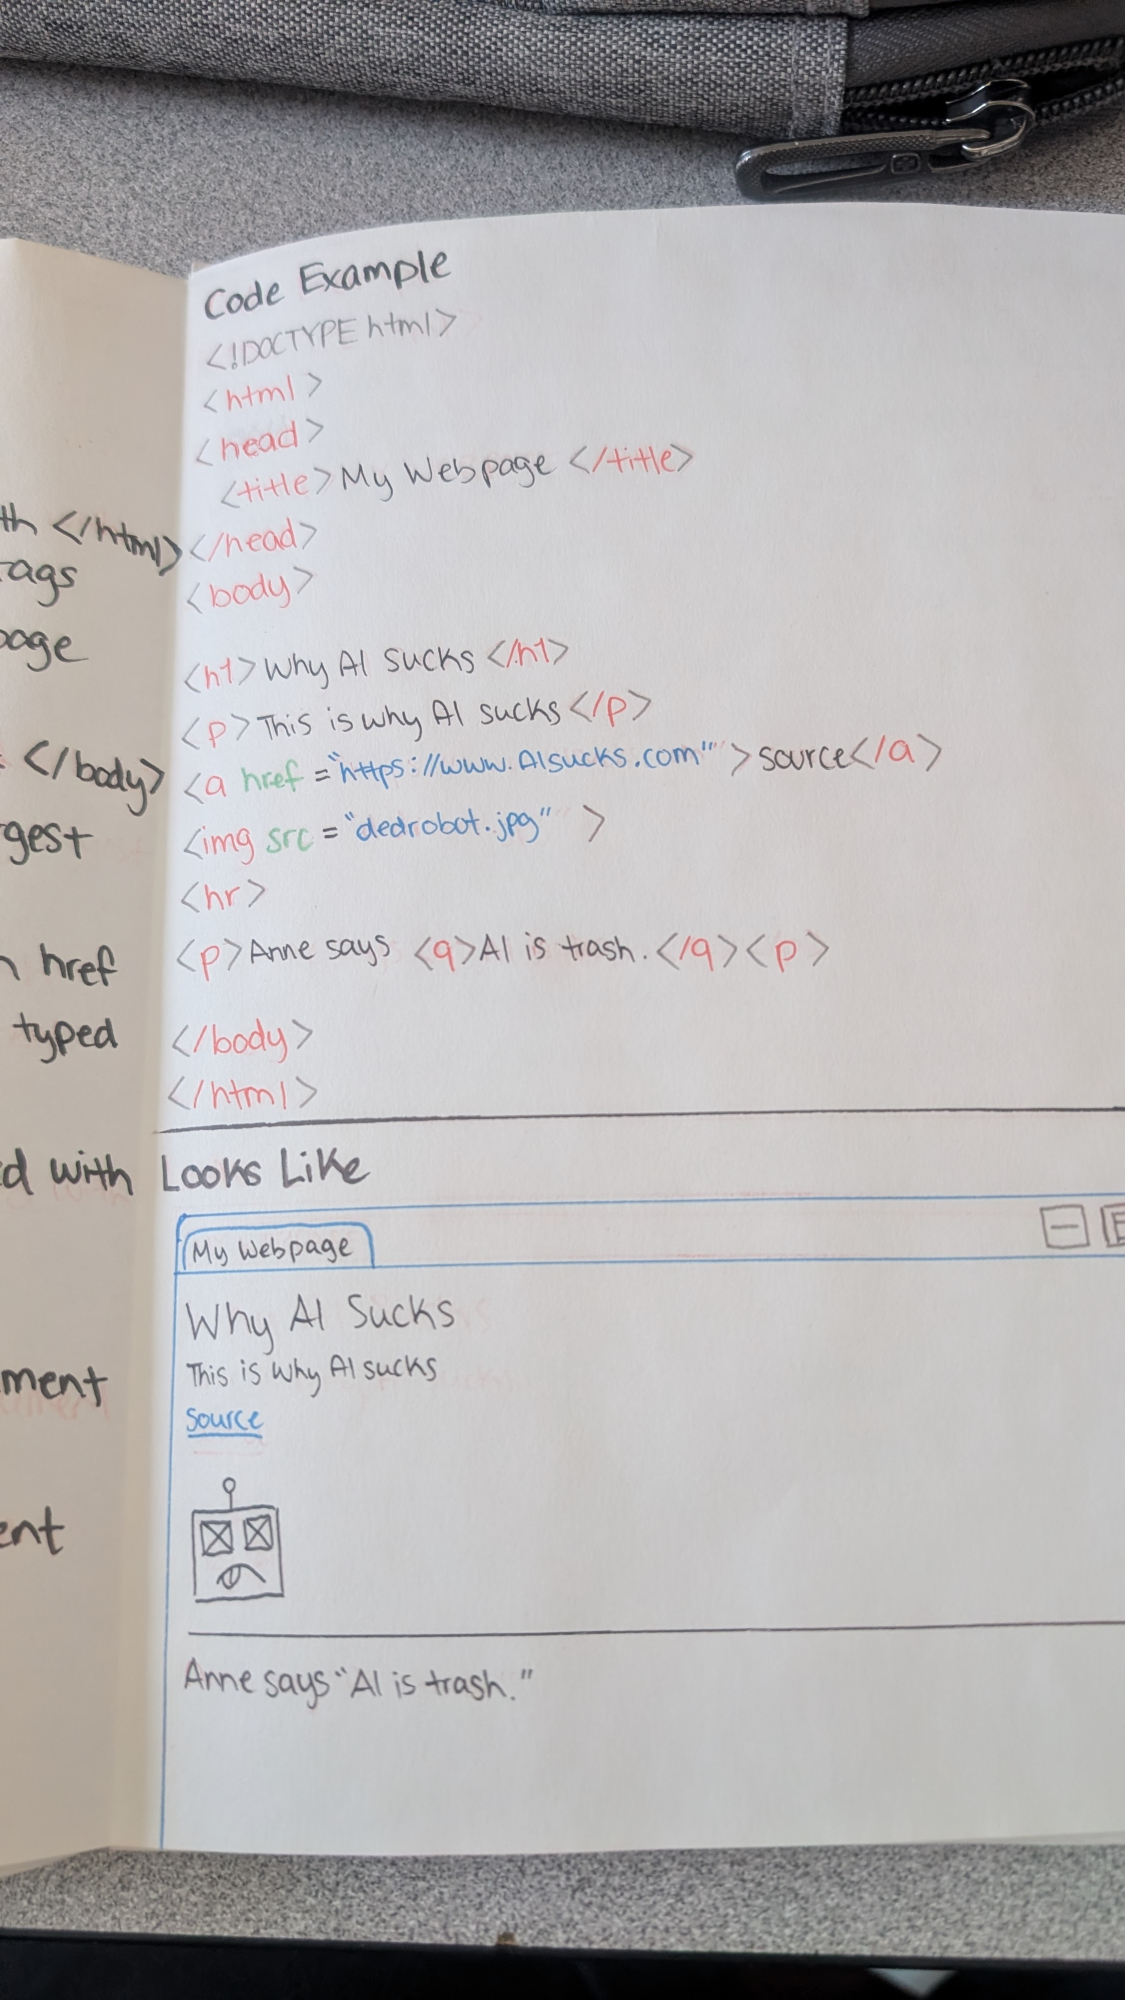 th </html>
ags
page
</body>
gest
href
typed
d with
ment
ent
Code Example
<!DOCTYPE html>
<html>
<head>
<title>My Webpage </title>
</head>
<body>
<h1>Why AI sucks </h1>
<p>This is why AI sucks</p>
<a href="https://www.AIsucks.com"">source</a>
<img src="dedrobot.jpg" >
<hr>
<p>Anne says <q>AI is trash.</q><p>
</body>
</html>
Looks Like
My Webpage
Why AI Sucks
This is why AI sucks
Source
Anne says "AI is trash."